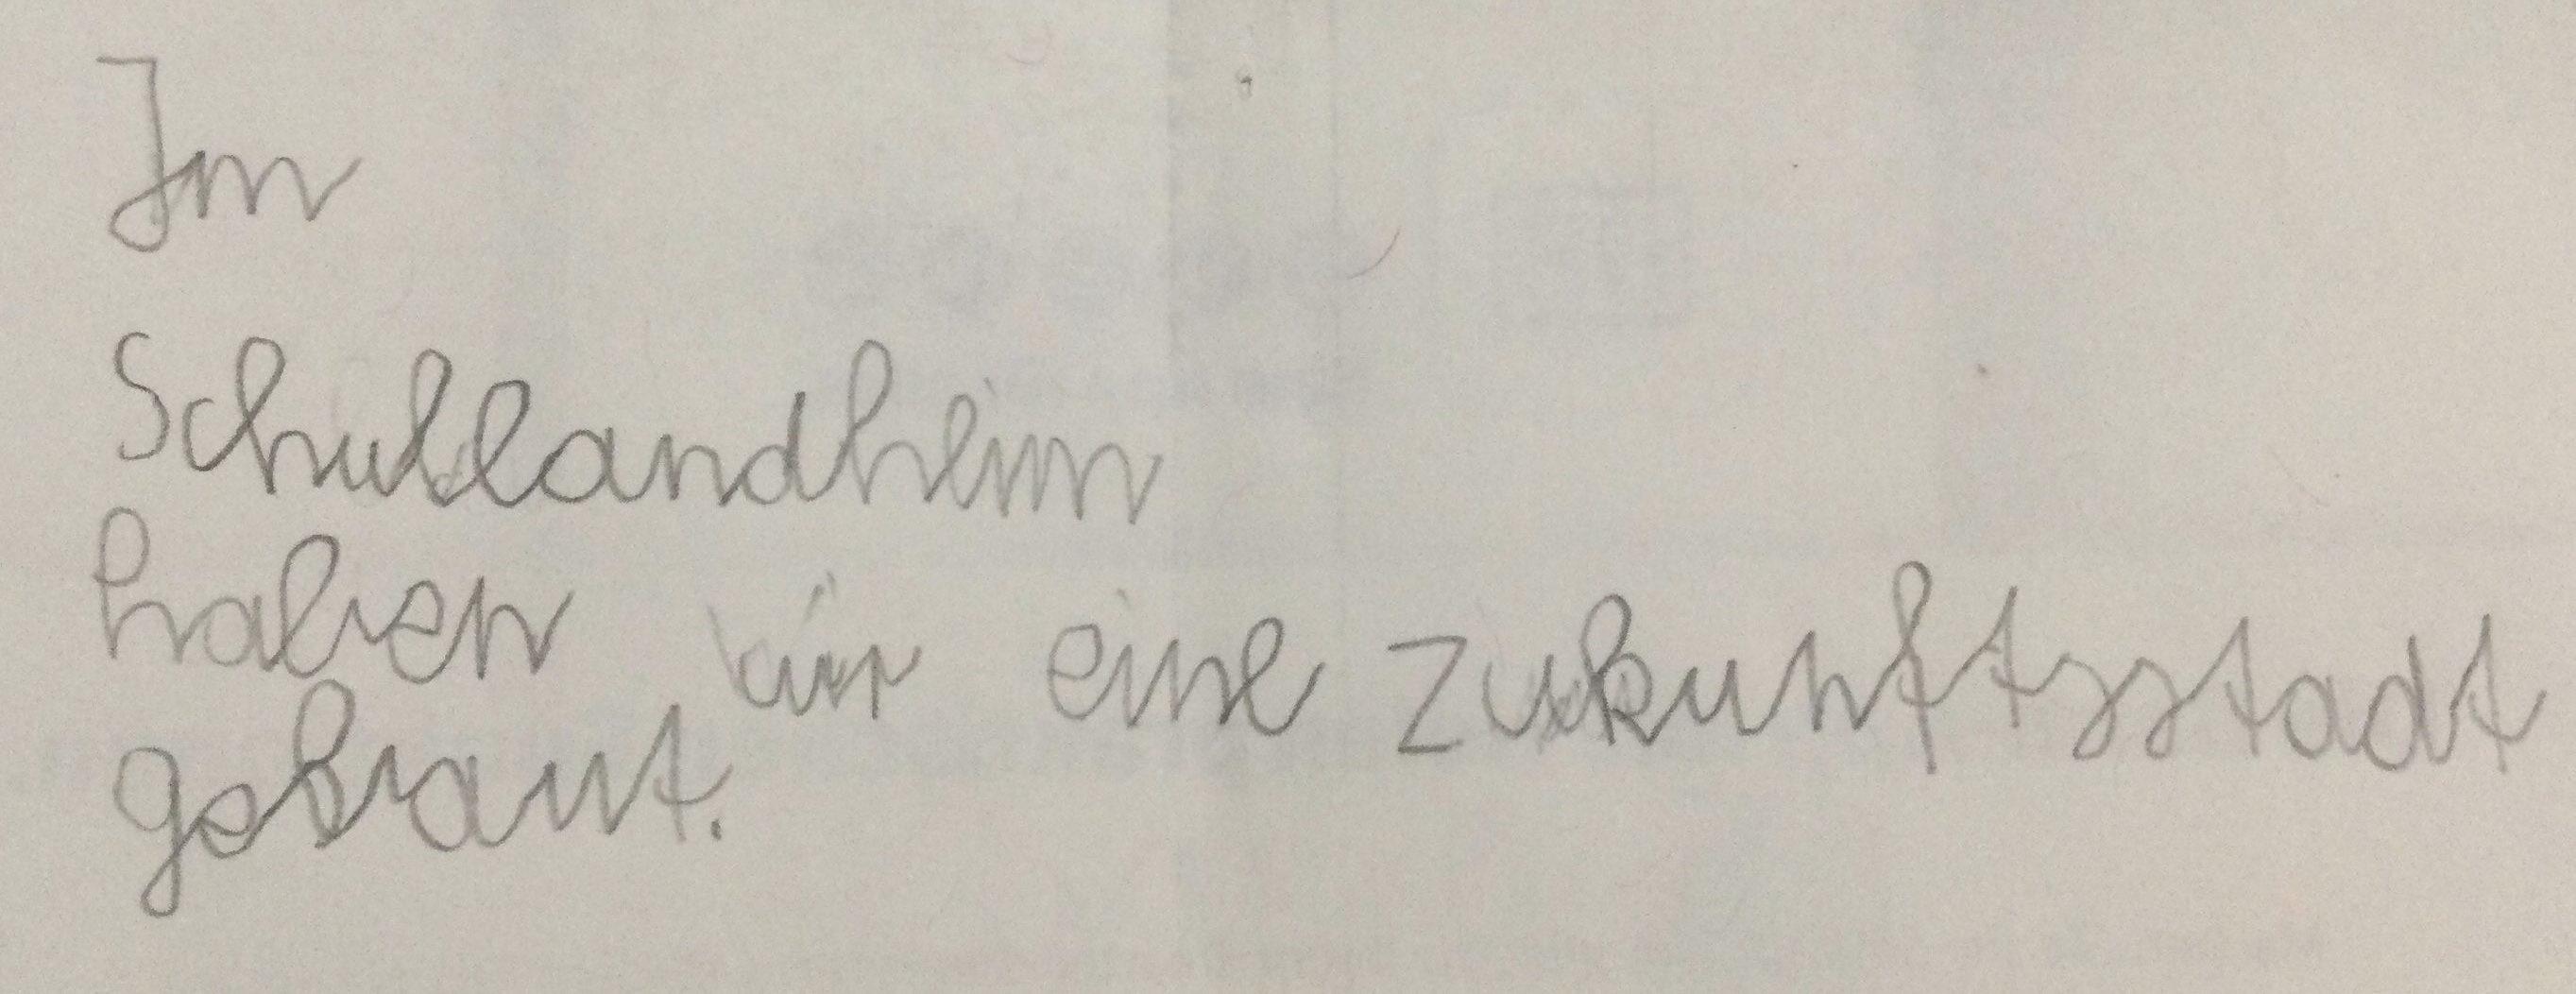 Im
Schullandheim
haben wir eine Zukunftsstadt
gebaut.